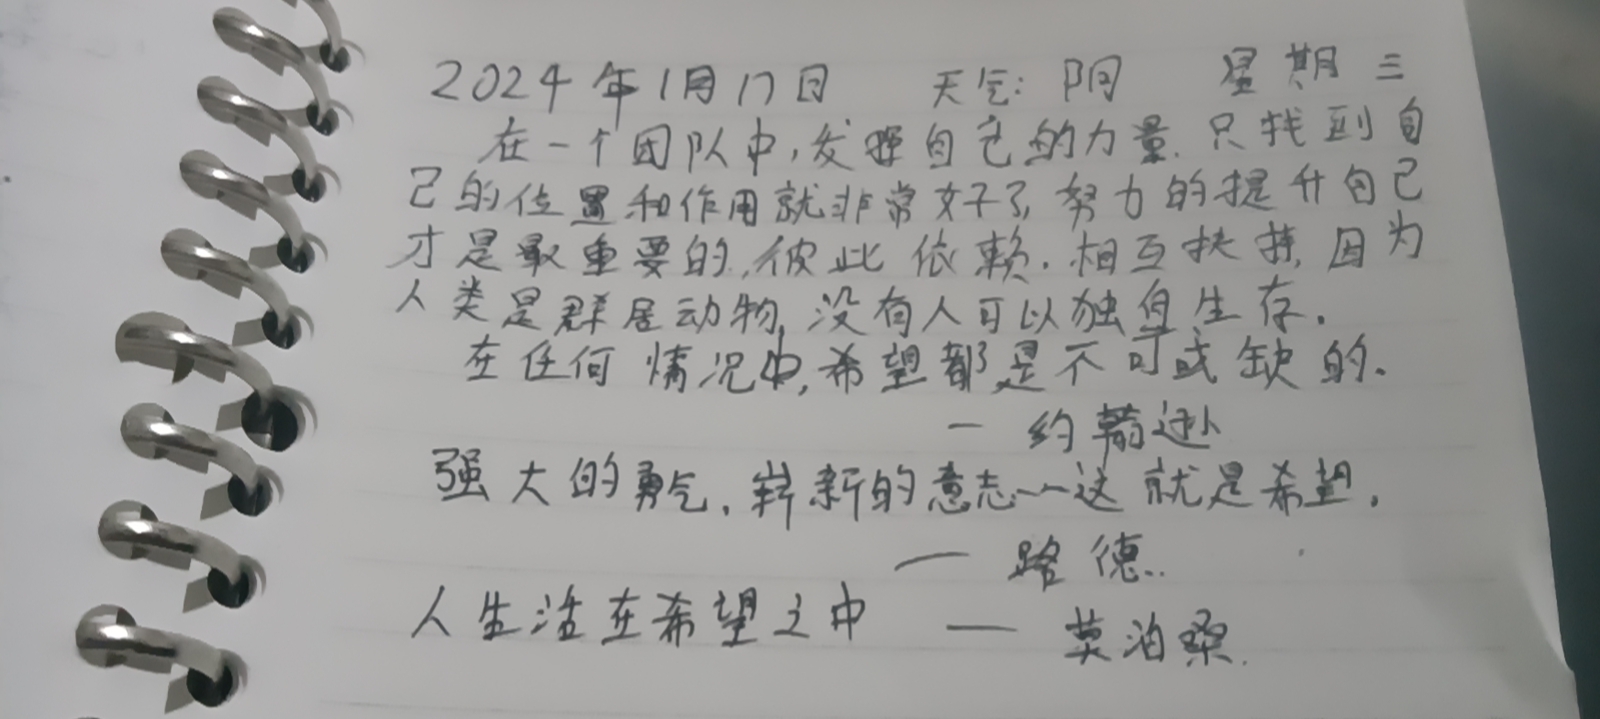 2024年1月17日 天气:阴 星期三
在一个团队中,发挥自己的力量.只找到自
己的位置和作用就非常好了,努力的提升自己
才是最重要的,彼此依赖.相互扶持,因为
人类是群居动物,没有人可以独自生存.
在任何情况中,希望都是不可或缺的.
—约翰逊
强大的勇气,崭新的意志——这就是希望.
—路德..
人生活在希望之中 —莫泊桑.